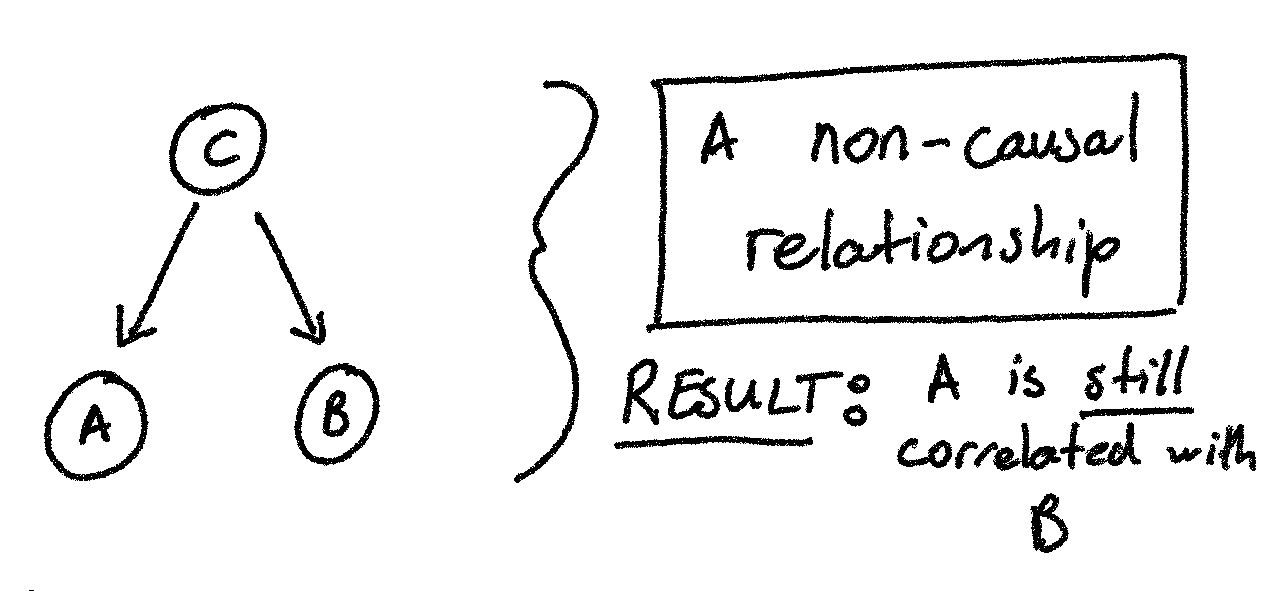 C
A
B
A non-causal
relationship
RESULT: A is still
correlated with
B